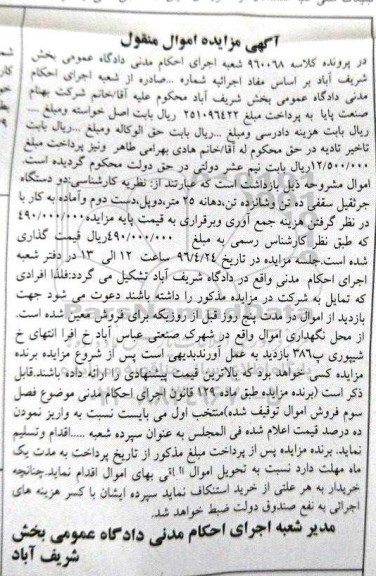 آگهی مزایده اموال منقول
در پرونده کلاسه ۹۶۰۰۶۸ شعبه اجرای احکام مدنی دادگاه عمومی بخش
شریف آباد بر اساس مفاد اجرائیه شماره ...صادره از شعبه اجرای احکام
مدنی دادگاه عمومی بخش شریف آباد محکوم علیه آقا/خانم شرکت بهنام
صنعت پایا به پرداخت مبلغ ۲۵۱۰۹۶۴۲۲ ریال بابت اصل خواسته ومبلغ ....
ریال بابت هزینه دادرسی ومبلغ ...ریال بابت حق الوکاله ومبلغ ...ریال بابت
تاخیر تادیه در حق محکوم له آقا/خانم هادی بهرامی طاهر ونیز پرداخت مبلغ
۱۲/۵۰۰/۰۰۰ریال بابت نیم عشر دولتی در حق دولت محکوم گردیده است.
اموال مشروحه ذیل بازداشت است که عبارتند از: نظریه کارشناسی:دو دستگاه
جرثقیل سقفی ده تن وشانزده تن،دهانه ۲۵ متر،دوپل،دست دوم وآماده به کار با
در نظر گرفتن هزینه جمع آوری وبرقراری به قیمت پایه مزایده۴۹۰/۰۰۰/۰۰۰
که طبق نظر کارشناس رسمی به مبلغ ۴۹۰/۰۰۰/۰۰۰ریال قیمت گذاری
شده است.جلسه مزایده در تاریخ ۹۶/۴/۲۴ ساعت ۱۲ الی ۱۳ در دفتر شعبه
اجرای احکام مدنی واقع در دادگاه شریف آباد تشکیل می گردد:فلذا افرادی
که تمایل به شرکت در مزایده مذکور را داشته باشند دعوت می شود جهت
بازدید از اموال در مدت پنج روز قبل از روزیکه برای فروش معین شده است.
از محل نگهداری اموال واقع در شهرک صنعتی عباس آباد خ افرا انتهای خ
شیپوری پ۳۸۶ بازدید به عمل آورندبدیهی است پس از شروع مزایده برنده
مزایده کسی خواهد بود که بالاترین قیمت پیشنهادی را ارائه داده باشند.قابل
ذکر است (برنده مزایده طبق ماده ۱۲۹ قانون اجرای احکام مدنی موضوع فصل
سوم فروش اموال توقیف شده)منتخب اول می بایست نسبت به واریز نمودن
ده درصد قیمت اعلام شده فی المجلس به عنوان سپرده شعبه .....اقدام وتسلیم
نماید. برنده مزایده پس از پرداخت مبلغ مذکور از تاریخ پرداخت به مدت یک
ماه مهلت دارد نسبت به تحویل اموال بهای اموال اقدام نماید.چنانچه
خریدار به هر علتی از خرید استنکاف نماید سپرده ایشان با کسر هزینه های
اجرائی به نفع صندوق دولت ضبط خواهد شد.
مدیر شعبه اجرای احکام مدنی دادگاه عمومی بخش
شریف آباد